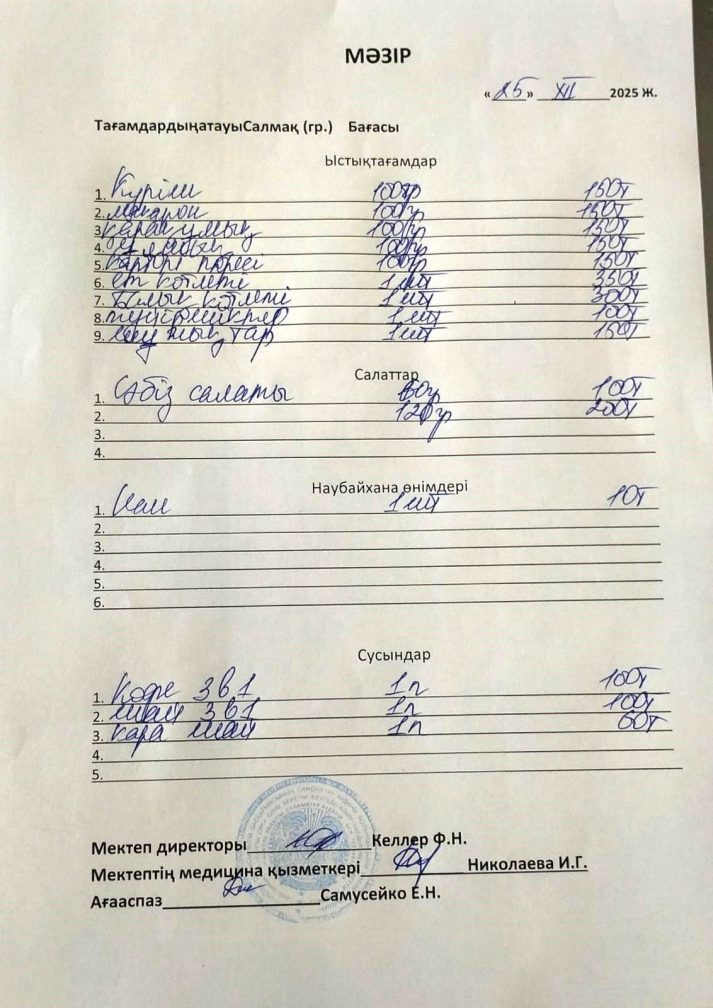 МӘЗІР
« 25 » XII 2025 Ж.
ТағамдардыңатауыСалмақ (гр.) Бағасы
Ыстықтағамдар
1. Күріш 100гр 150т
2. макарон 100гр 150т
3. қарақұмық 100гр 150т
4. 100гр 150т
5. картоп пюресі 100гр 150т
6. ет котлеті 1 шт 350т
7. Балық котлеті 1 шт 300т
8. 1 шт 100т
9. 1шт 150т
Салаттар
1. Сәбіз салаты 60гр 100т
2. 120гр 200т
3.
4.
Наубайхана өнімдері
1. Нан 1 шт 10т
2.
3.
4.
5.
6.
Сусындар
1. Кофе 3в1 1п 100т
2. шай 3в1 1п 100т
3. қара шай 1п 60т
4.
5.
Мектеп директоры Келлер Ф.Н.
Мектептің медицина қызметкері Николаева И.Г.
Ағааспаз Самусейко Е.Н.